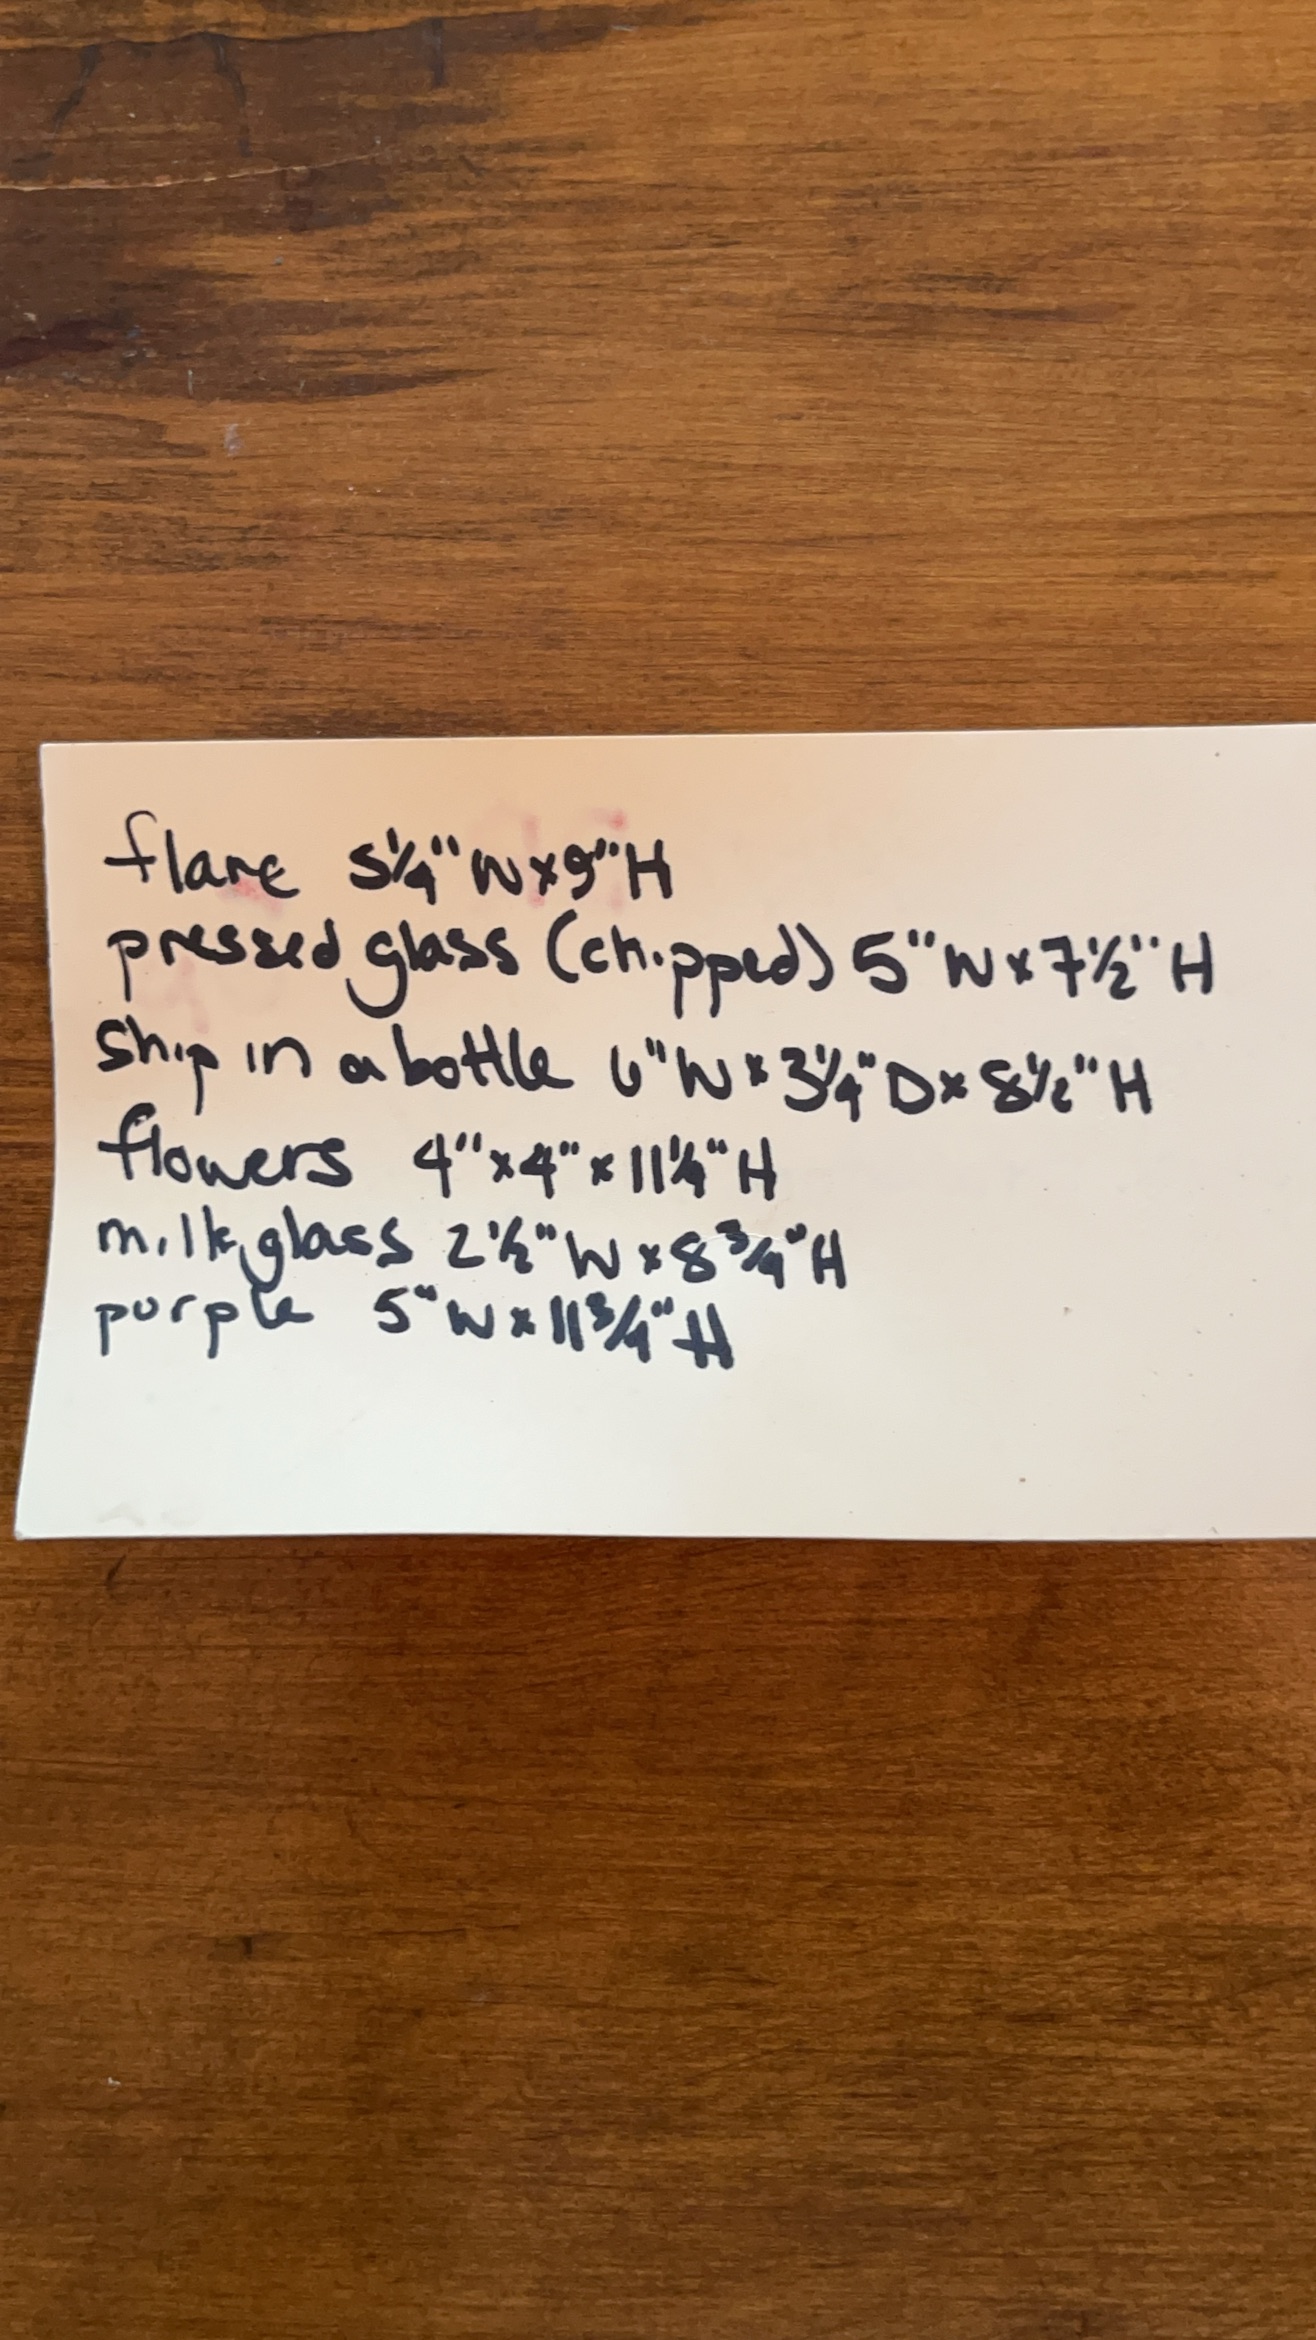 flare 5¼" W x 9" H
pressed glass (chipped) 5" W x 7½" H
ship in a bottle 6" W x 3¼" D x 8½" H
flowers 4" x 4" x 11¼" H
milk glass 2½" W x 8¾" H
purple 5" W x 11¾" H